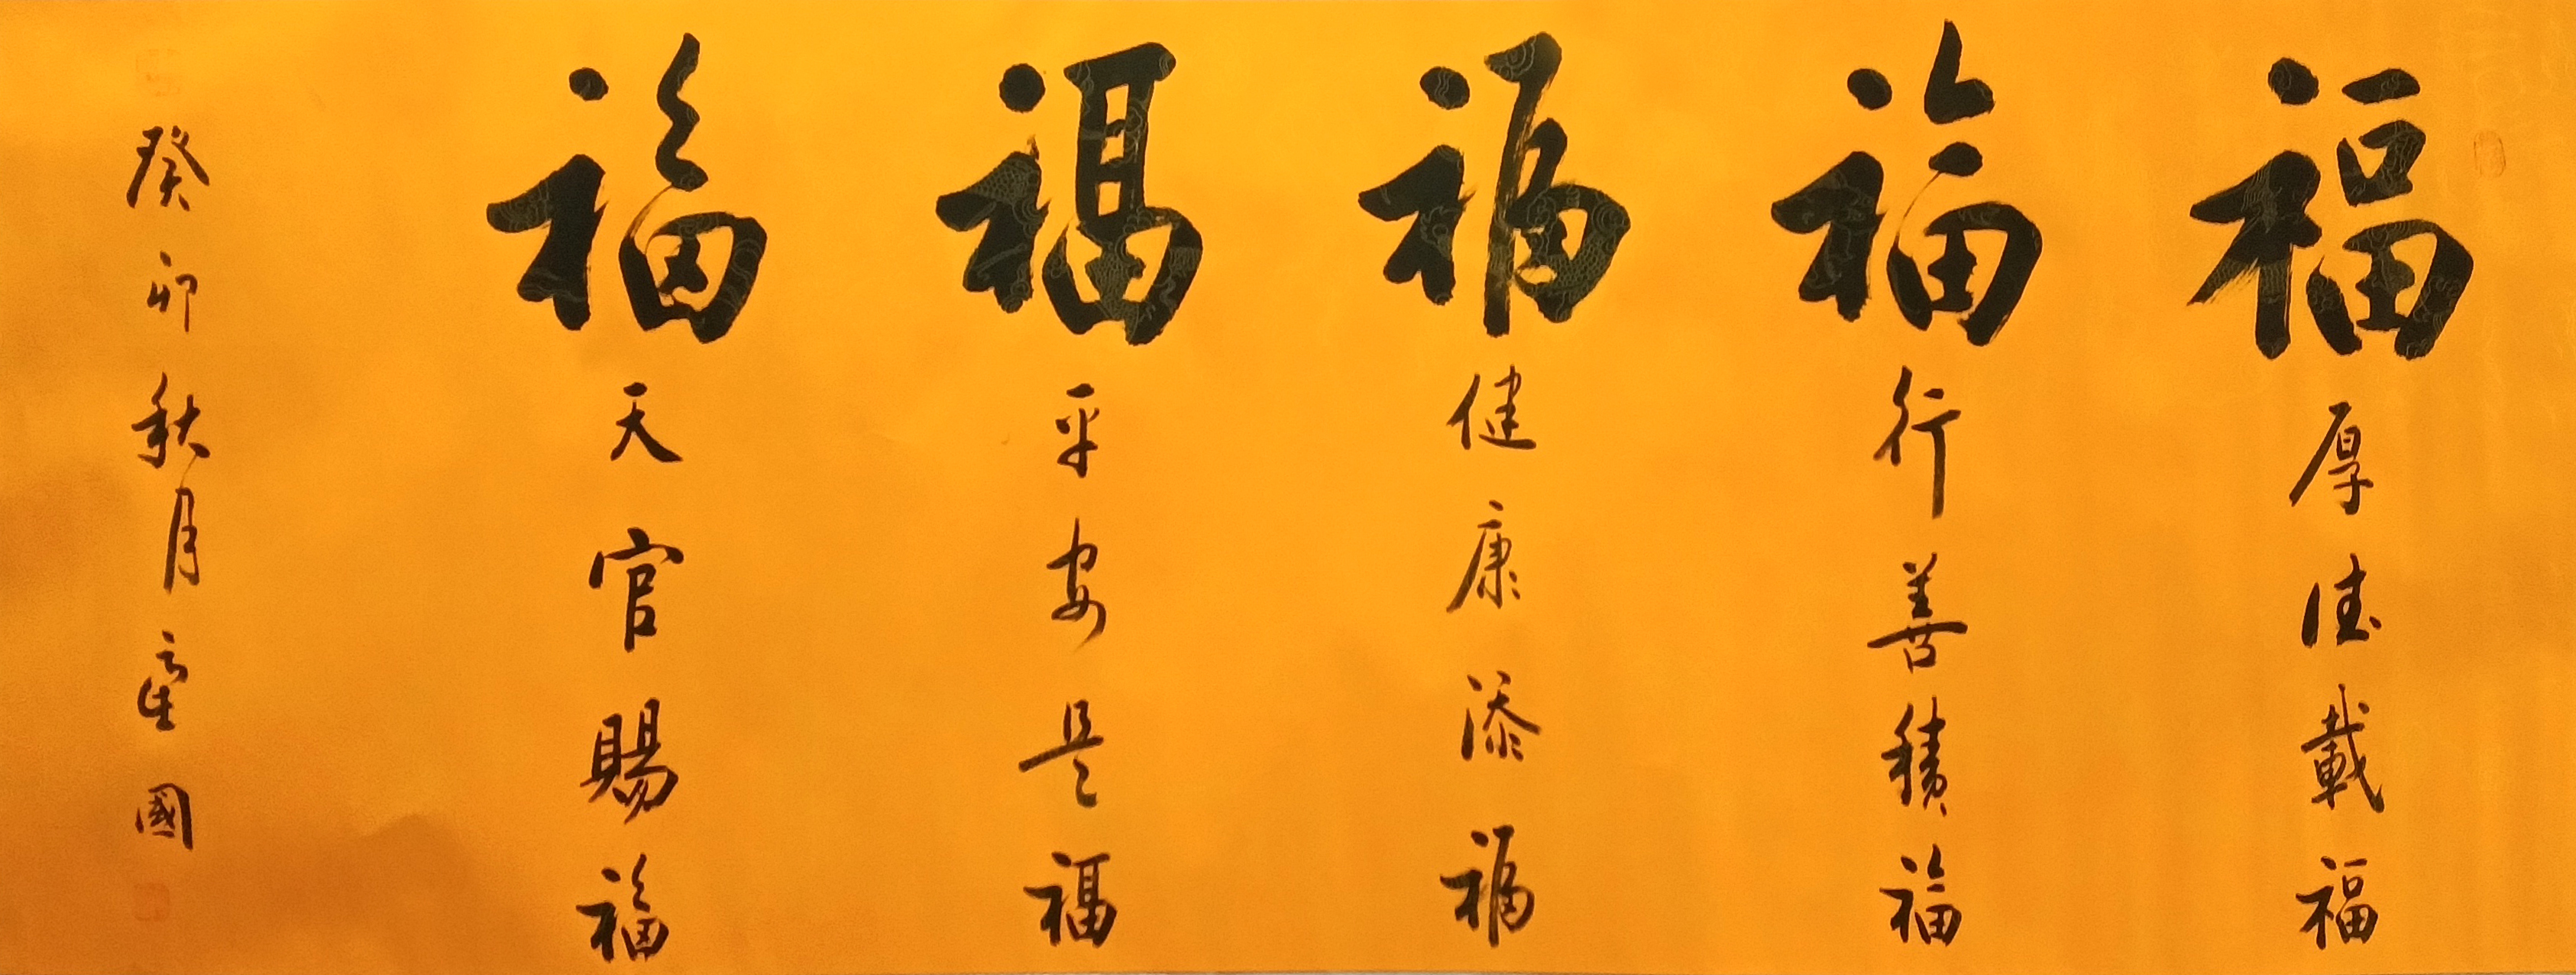 福
厚德載福
福
行善積福
福
健康添福
福
平安是福
福
天官賜福
癸卯秋月 國